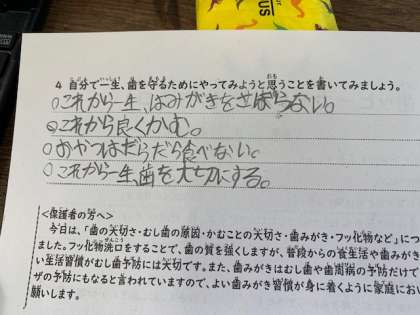 4 自分で一生、歯を守るためにやってみようと思うことを書いてみましょう。
○これから一生、はみがきをさぼらない。
○これから良くかむ。
○おやつはだらだら食べない。
○これから一生、歯を大切にする。
<保護者の方へ>
今日は、「歯の大切さ・むし歯の原因・かむことの大切さ・歯みがき・フッ化物など」につ
ました。フッ化物洗口をすることで、歯の質を強くしますが、普段からの食生活や歯みがき
い生活習慣がむし歯予防には大切です。また、歯みがきはむし歯や歯周病の予防だけで
ザの予防にもなると言われていますので、よい歯みがき習慣が身に着くように家庭にお
願いします。